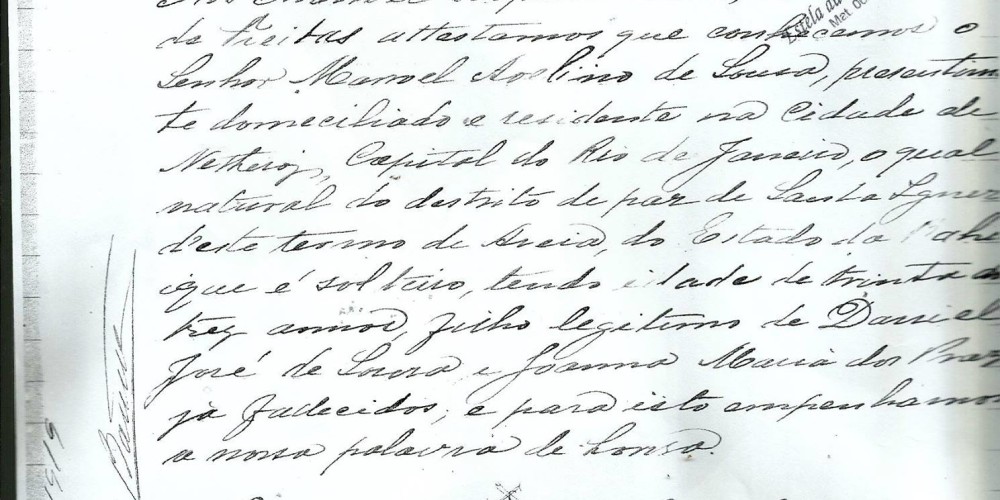 de Freitas attestamos que conhecemos o
Senhor Manoel Avelino de Sousa, presentimen
te domiciliado e residente na Cidade de
Netheroy, Capital do Rio de Janeiro, o qual
natural do destrito de paz de Santa Ignez
d'este termo de Areia, do Estado da Bahi
que é solteiro, tendo idade de trinta e
trez annos, filho legitimo de Daniel
José de Sousa e Joanna Maria dos Praz
ja faliecidos, e para isto empenhamos
a nossa palavra de honra.
1919